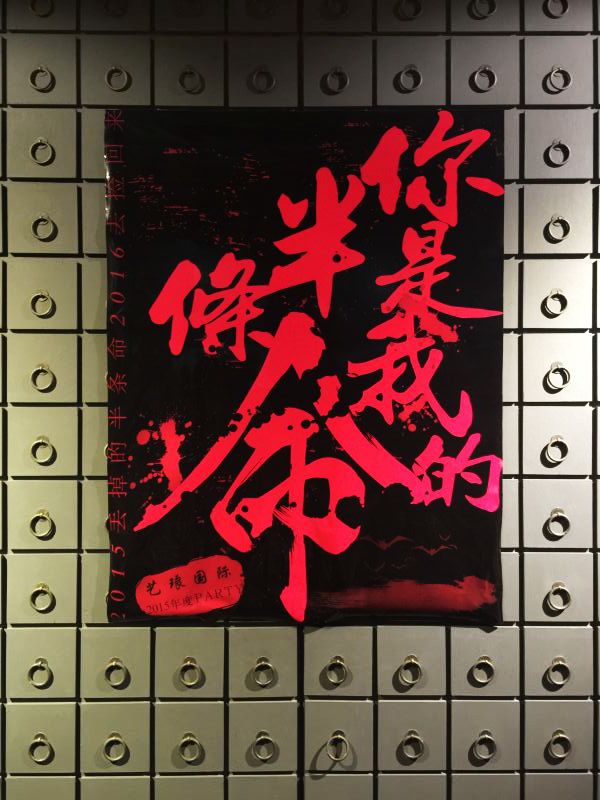 你是我的
半條命
2015丢掉的半条命2016去捡回来
艺琅国际
2015年度PARTY